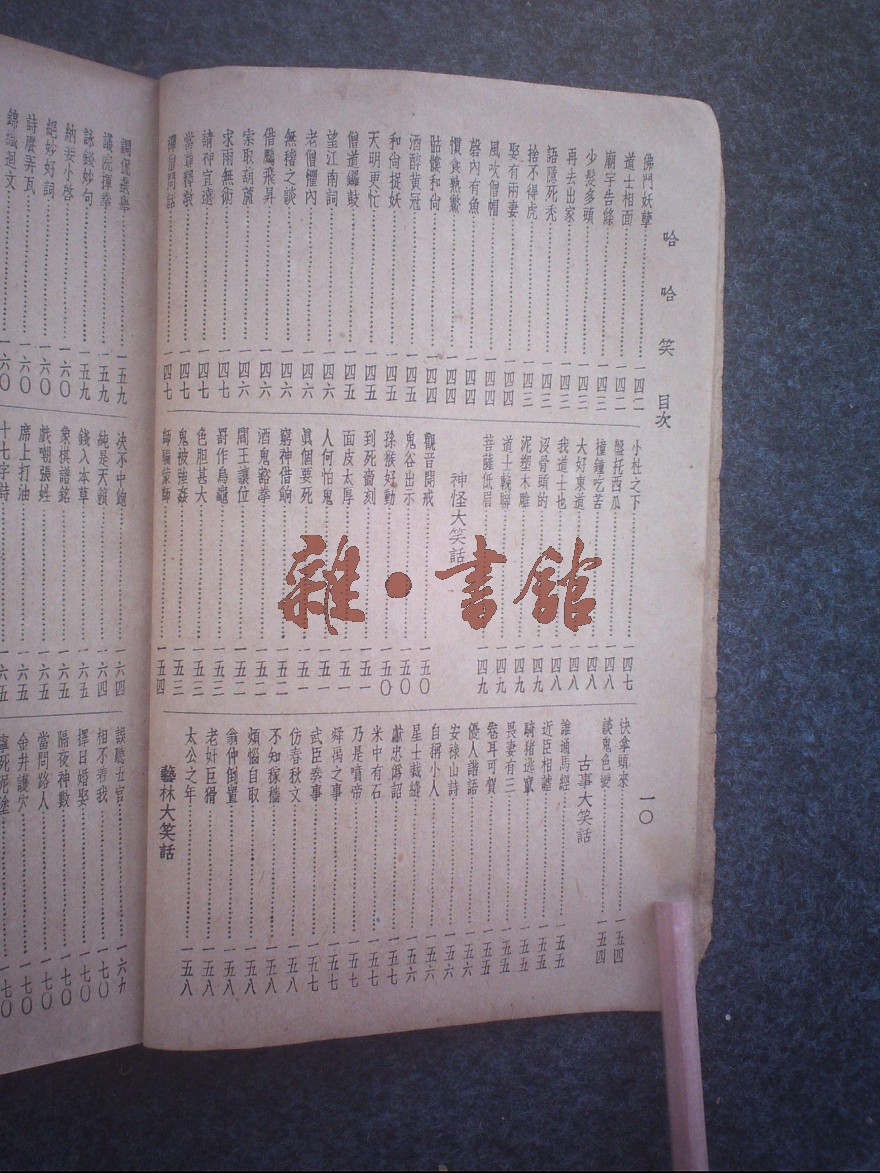 哈哈笑 目次
一〇
佛門妖孽 一四二
道士相面 一四二
廟宇告條 一四三
少髮多頭 一四三
再去出家 一四三
語隱死禿 一四三
捨不得虎 一四三
娶有兩妻 一四四
風吹僧帽 一四四
磬內有魚 一四四
慣食熟鱉 一四四
骷髏和尚 一四四
酒醉黄冠 一四五
和尚捉妖 一四五
天明更忙 一四五
僧道鑼鼓 一四五
望江南詞 一四六
老僧懼內 一四六
無稽之談 一四六
借鸞飛昇 一四六
索取葫蘆 一四六
求雨無術 一四七
請神宜遠 一四七
一四七
禪僧問話 一四七
小杜之下 一四七
盤托西瓜 一四八
撞鐘吃苦 一四八
大好東道 一四八
我道士也 一四八
沒骨頭的 一四九
泥塑木雕 一四九
道士輓聯 一四九
菩薩低眉 一四九
神怪大笑話
觀音開戒 一五〇
鬼谷出示 一五〇
孫猴好動 一五〇
到死嗇刻 一五一
面皮太厚 一五一
人何怕鬼 一五一
眞個要死 一五一
窮神借餉 一五二
酒鬼豁拳 一五二
閻王讓位 一五二
哥作烏龜 一五三
色胆甚大 一五三
鬼被強姦 一五三
師騙蒙師 一五四
快拿頭來 一五四
談鬼色變 一五四
古事大笑話
誰通馬經 一五五
近臣相謔 一五五
騎猪逃竄 一五五
畏妻有三 一五五
卷耳可賀 一五五
優人諧語 一五六
安祿山詩 一五六
自稱小人 一五六
星士裁縫 一五六
獻忠僞詔 一五七
米中有石 一五七
乃是噴帝 一五七
舜禹之事 一五七
武臣奏事 一五七
仿春秋文 一五八
不知稼穡 一五八
煩惱自取 一五八
翁仲倒置 一五八
老奸巨猾 一五八
太公之年 一五八
藝林大笑話
調侃選舉 一五九
議院揮拳 一五九
詠錢妙句 一五九
納妾小啓 一六〇
絕妙好詞 一六〇
詩慶弄瓦 一六〇
錦織迴文 一六〇
決不中飽 一六四
純是天籟 一六四
錢入本草 一六五
象棋譜銘 一六五
戲嘲張姓 一六五
席上打油 一六五
十七字詩 一六五
誤聽丑官 一六九
相不着我 一七〇
擇日婚娶 一七〇
隔夜神數 一七〇
當問路人 一七〇
金井護穴 一七〇
一七〇
雜·書館